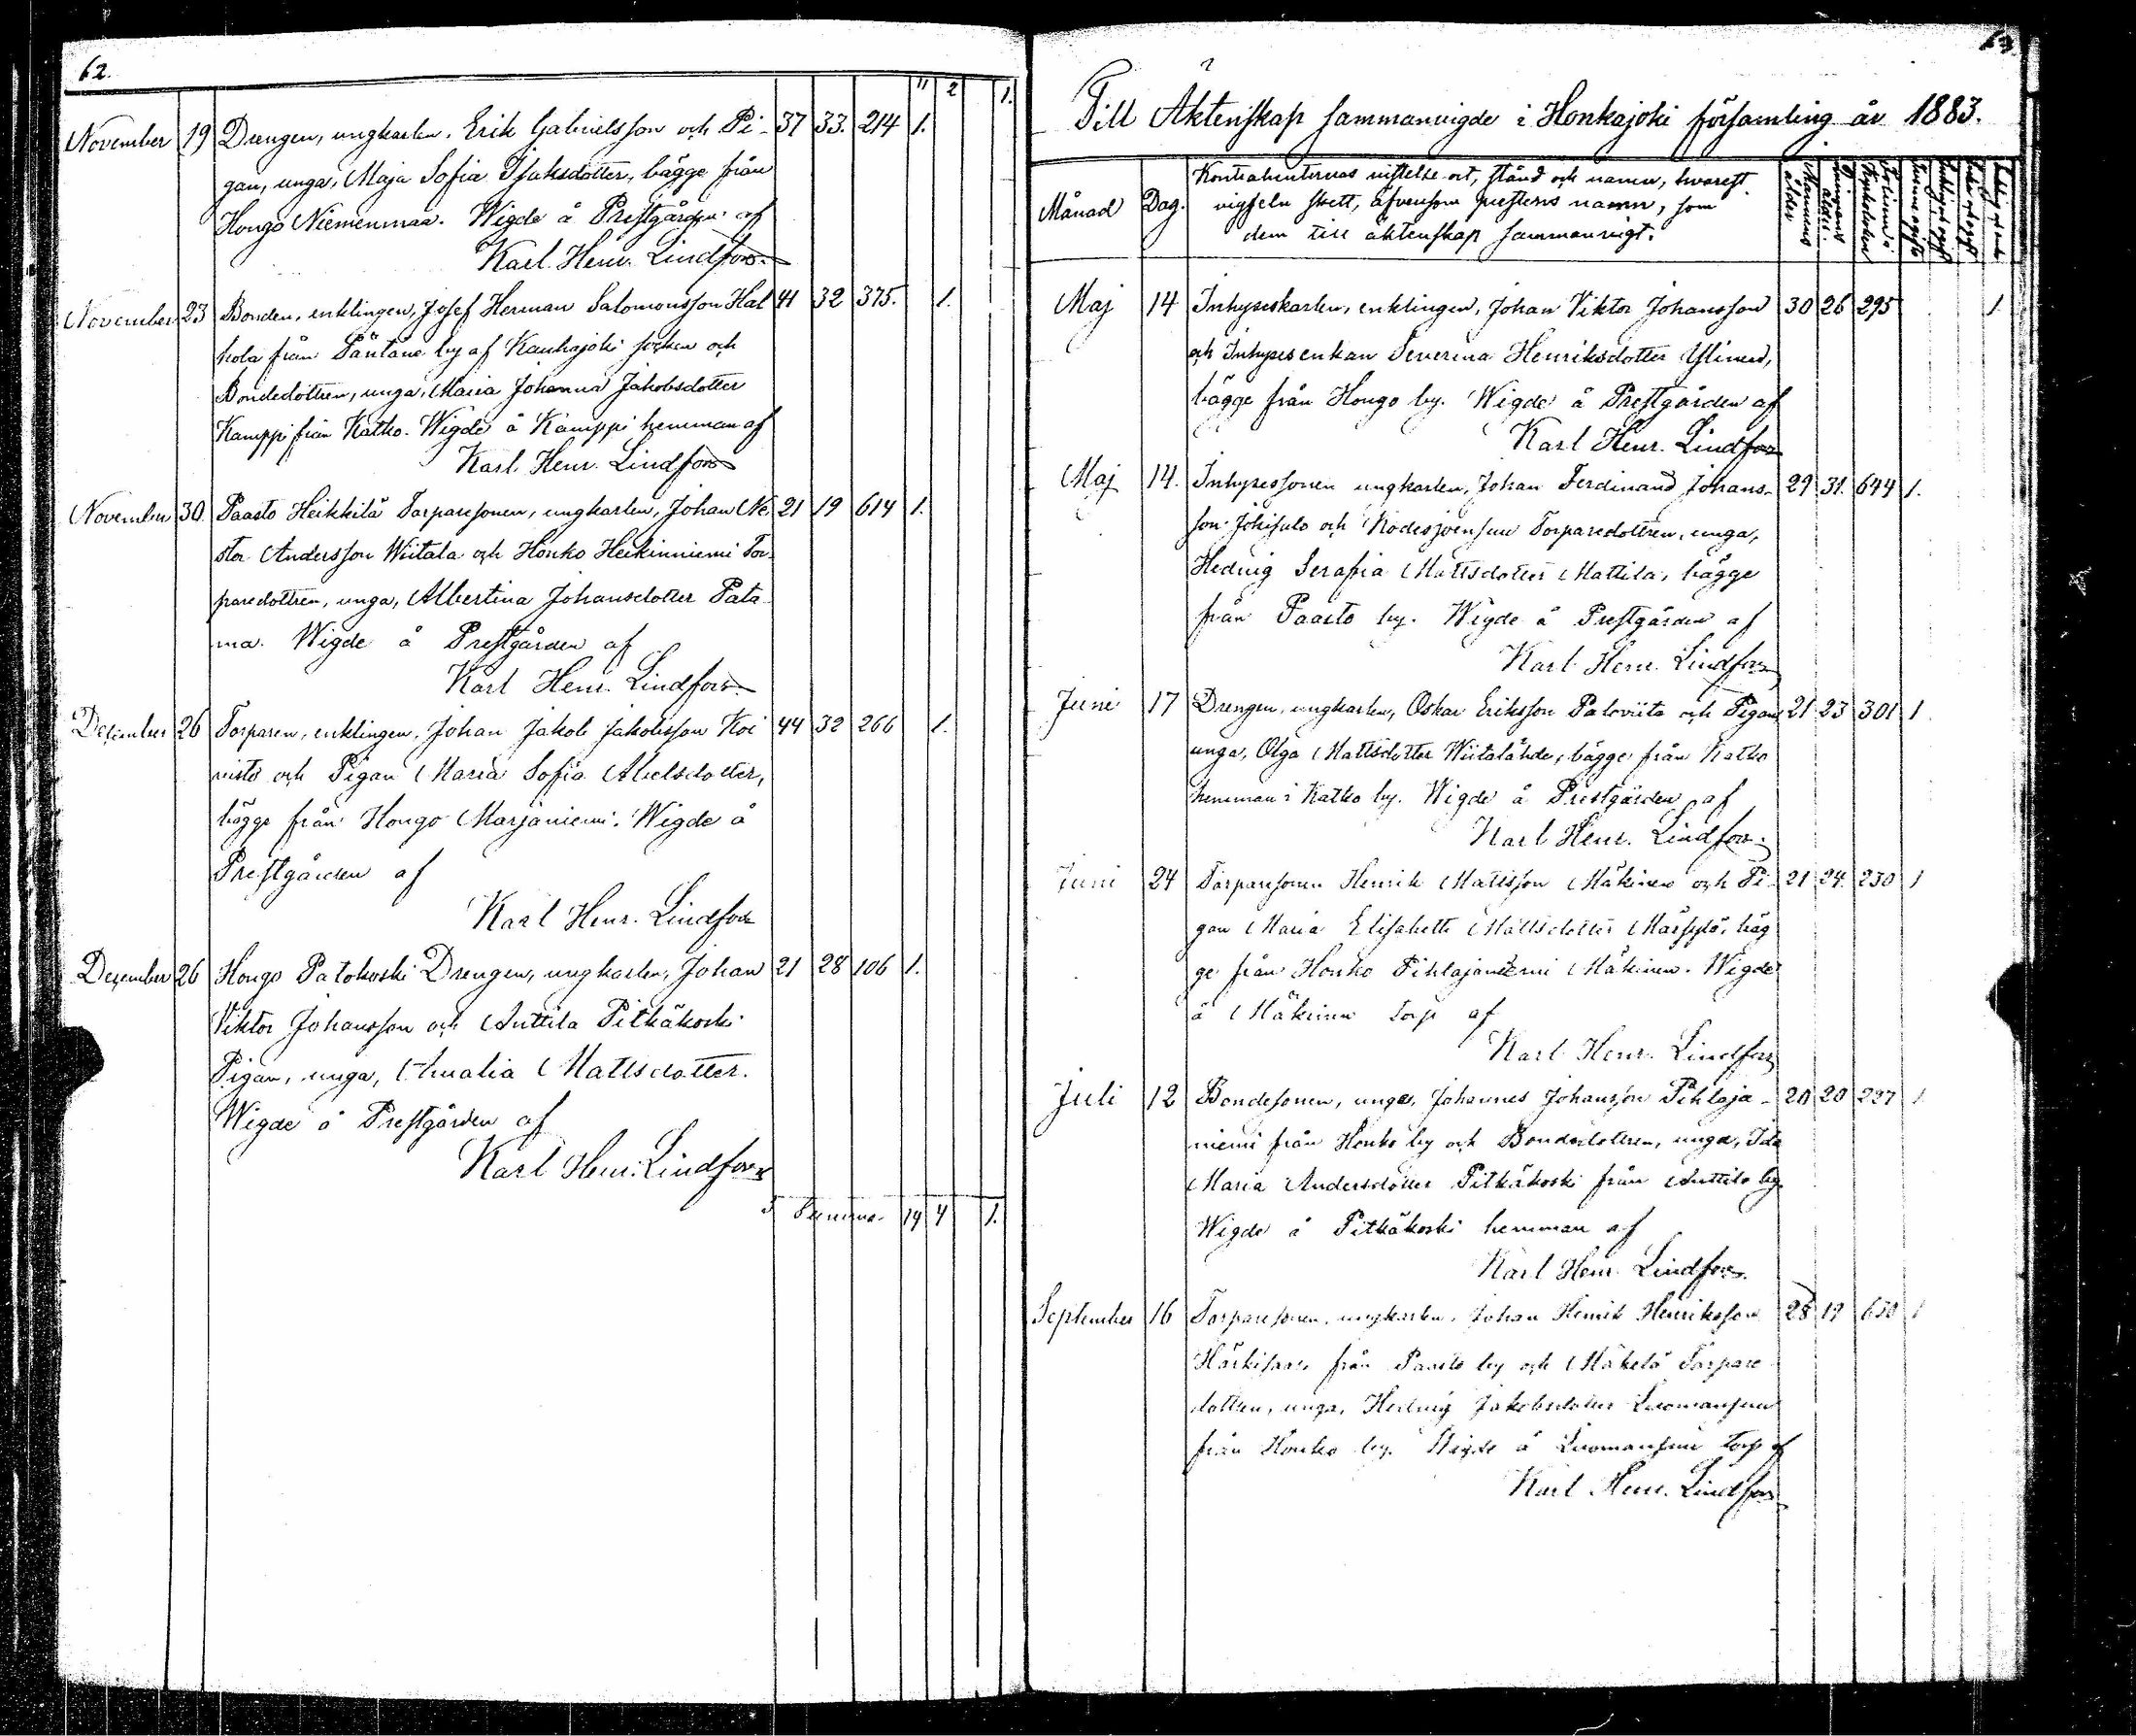 62.
11 2 1.
November 19 Drengen, ungkarlen, Erik Gabrielsson och Pi- 37 33. 214 1.
gan, unga, Maja Sofia Isaksdotter, bägge från
Hongo Niemenmaa. Wigde å Prestgården af
Karl Henr. Lindfors
November 23 Bonden, enklingen, Josef Herman Salomonsson Hal 41 32 375. 1.
kola från Päntäne by af Kauhajoki socken och
Bondedottren, unga, Maria Johanna Jakobsdotter
Kamppi från Katko. Wigde å Kamppi hemman af
Karl Henr. Lindfors
November 30. Paasto Heikkilä Torparesonen, ungkarlen, Johan Ne 21 19 614 1.
stor Andersson Wiitala och Honko Heikinniemi Tor
paredottren, unga, Albertina Johansdotter Pata
ma. Wigde å Prestgården af
Karl Henr. Lindfors
December 26 Torparen, enklingen, Johan Jakob Jakobsson Koi 44 32 266 1.
visto och Pigan Maria Sofia Abelsdotter,
bägge från Hongo Marjaniemi. Wigde å
Prestgården af
Karl Henr. Lindfors
December 26 Hongo Patokoski Drengen, ungkarlen, Johan 21 28 106 1.
Viktor Johansson och Anttila Pitkäkoski
Pigan, unga, Amalia Mattsdotter.
Wigde å Prestgården af
Karl Henr. Lindfors
Summa 19 4 1.
63
Till Äktenskap sammanvigde i Honkajoki församling år 1883.
Månad Dag. Kontrahenternas vistelse ort, stånd och namn, hvarest
vigseln skett, äfvensom prestens namn, som
dem till äktenskap sammanvigt.
Mannens ålder
Qvinnans ålder.
Maj 14 Inhyseskarlen, enklingen, Johan Viktor Johansson 30 26 295 1
och Inhysesenkan Severina Henriksdotter Ylinen,
bägge från Hongo by. Wigde å Prestgården af
Karl Henr. Lindfors
Maj 14. Inhysessonen ungkarlen, Johan Ferdinand Johans- 29 31. 644 1.
son Jokisalo och Kodesjoensuu Torparedottren, unga,
Hedvig Serafia Mattsdotter Mattila, bägge
från Paasto by. Wigde å Prestgården af
Karl Henr. Lindfors
Juni 17 Drengen, ungkarlen, Oskar Eriksson Paloviita och Pigan 21 23 301 1
unga, Olga Mattsdotter Wiitalähde, bägge från Katko
hemman i Katko by. Wigde å Prestgården af
Karl Henr. Lindfors
Juni 24 Torparesonen Henrik Mattsson Mäkinen och Pi- 21 24. 230 1
gan Maria Elisabeth Mattsdotter bäg
ge från Honko Pihlajaniemi Mäkinen. Wigde
å Mäkinen torp af
Karl Henr. Lindfors
Juli 12 Bondesonen, unga, Johannes Johansson Pihlaja- 20 20 227 1
niemi från Honko by och Bondedottren, unga, Ida
Maria Andersdotter Pitkäkoski från Anttila by
Wigde å Pitkäkoski hemman af
Karl Henr. Lindfors
September 16 Torparesonen, ungkarlen, Johan Henrik Henriksson 28 19 650 1
Härkisaari från Paasto by och Mäkelä Torpare
dottren, unga, Hedvig Jakobsdotter Luomansuu
från Honko by. Wigde å Luomansuu torp af
Karl Henr. Lindfors